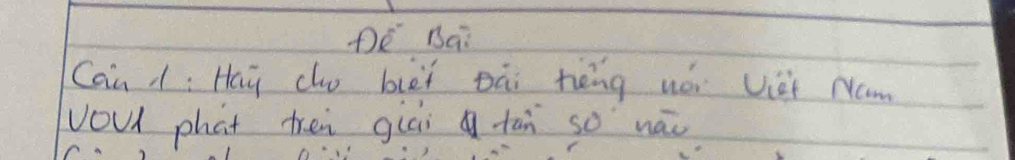 Đề Bài
Câu 1: Hãy cho biết Đài tiếng nói Việt Nam
VOV1 phát trên giải tần số nào